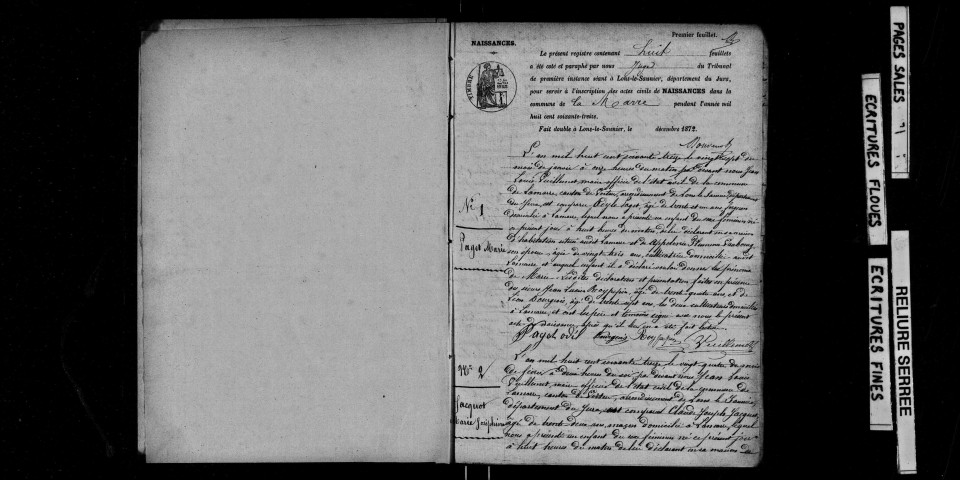 Premier feuillet.
NAISSANCES.
Le présent registre contenant huit feuillets
a été coté et paraphé par nous Juge du Tribunal
de première instance séant à Lons-le-Saunier, département du Jura,
pour servir à l'inscription des actes civils de NAISSANCES dans la
commune de La Marre pendant l'année mil
huit cent soixante-treize.
Fait double à Lons-le-Saunier, le décembre 1872.
TIMBRE
N° 1
Paget Marie
L'an mil huit cent soixante treize le vingt sept du
mois de janvier à onze heures du matin par devant nous Jean
Louis Vuillemet, maire officier de l'état civil de la commune
de Lamarre, canton de Voiteur, arrondissement de Lons le Saunier département
du Jura, est comparu Paget, âgé de trente et un ans
domicilié à Lamarre, lequel nous a présenté un enfant du sexe féminin né
ce présent jour à huit heures du matin de lui déclarant en sa maison
d'habitation située audit Lamarre et de
son épouse, âgée de vingt trois ans, cultivatrice domiciliée audit
Lamarre et auquel enfant il a déclaré vouloir donner le prénom
de Marie. Lesdites déclaration et présentation faites en présence
de sieurs Jean Louis âgé de trente quatre ans et de
Léon Bourgeois, âgé de trente sept ans, les deux cultivateurs domiciliés
à Lamarre, et ont les père et témoins signé avec nous le présent
acte de naissance, après qu'il leur en a été fait lecture
Paget Bourgeois Vuillemet
N° 2
Jacquot
Marie Joséphine
L'an mil huit cent soixante treize le vingt quatre du mois
de par devant nous Jean Louis
Vuillemet, maire officier de l'état civil de la commune de
Lamarre, canton de Voiteur, arrondissement de Lons le Saunier,
département du Jura, est comparu Claude Joseph Jacquot,
âgé de trente deux ans, maçon domicilié à Lamarre, lequel
nous a présenté un enfant du sexe féminin né ce présent jour
à huit heures du matin de lui déclarant en sa maison
PAGES SALES
ECRITURES FLOUES
ECRITURES FINES
RELIURE SERREE